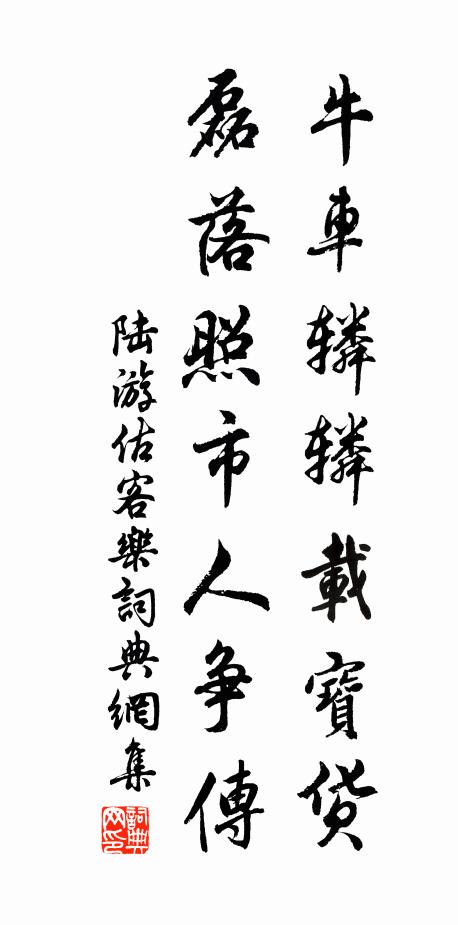 牛車轔轔載寶貨
磊落照市人争傳
陸游估客樂詞典網集
詞典网印